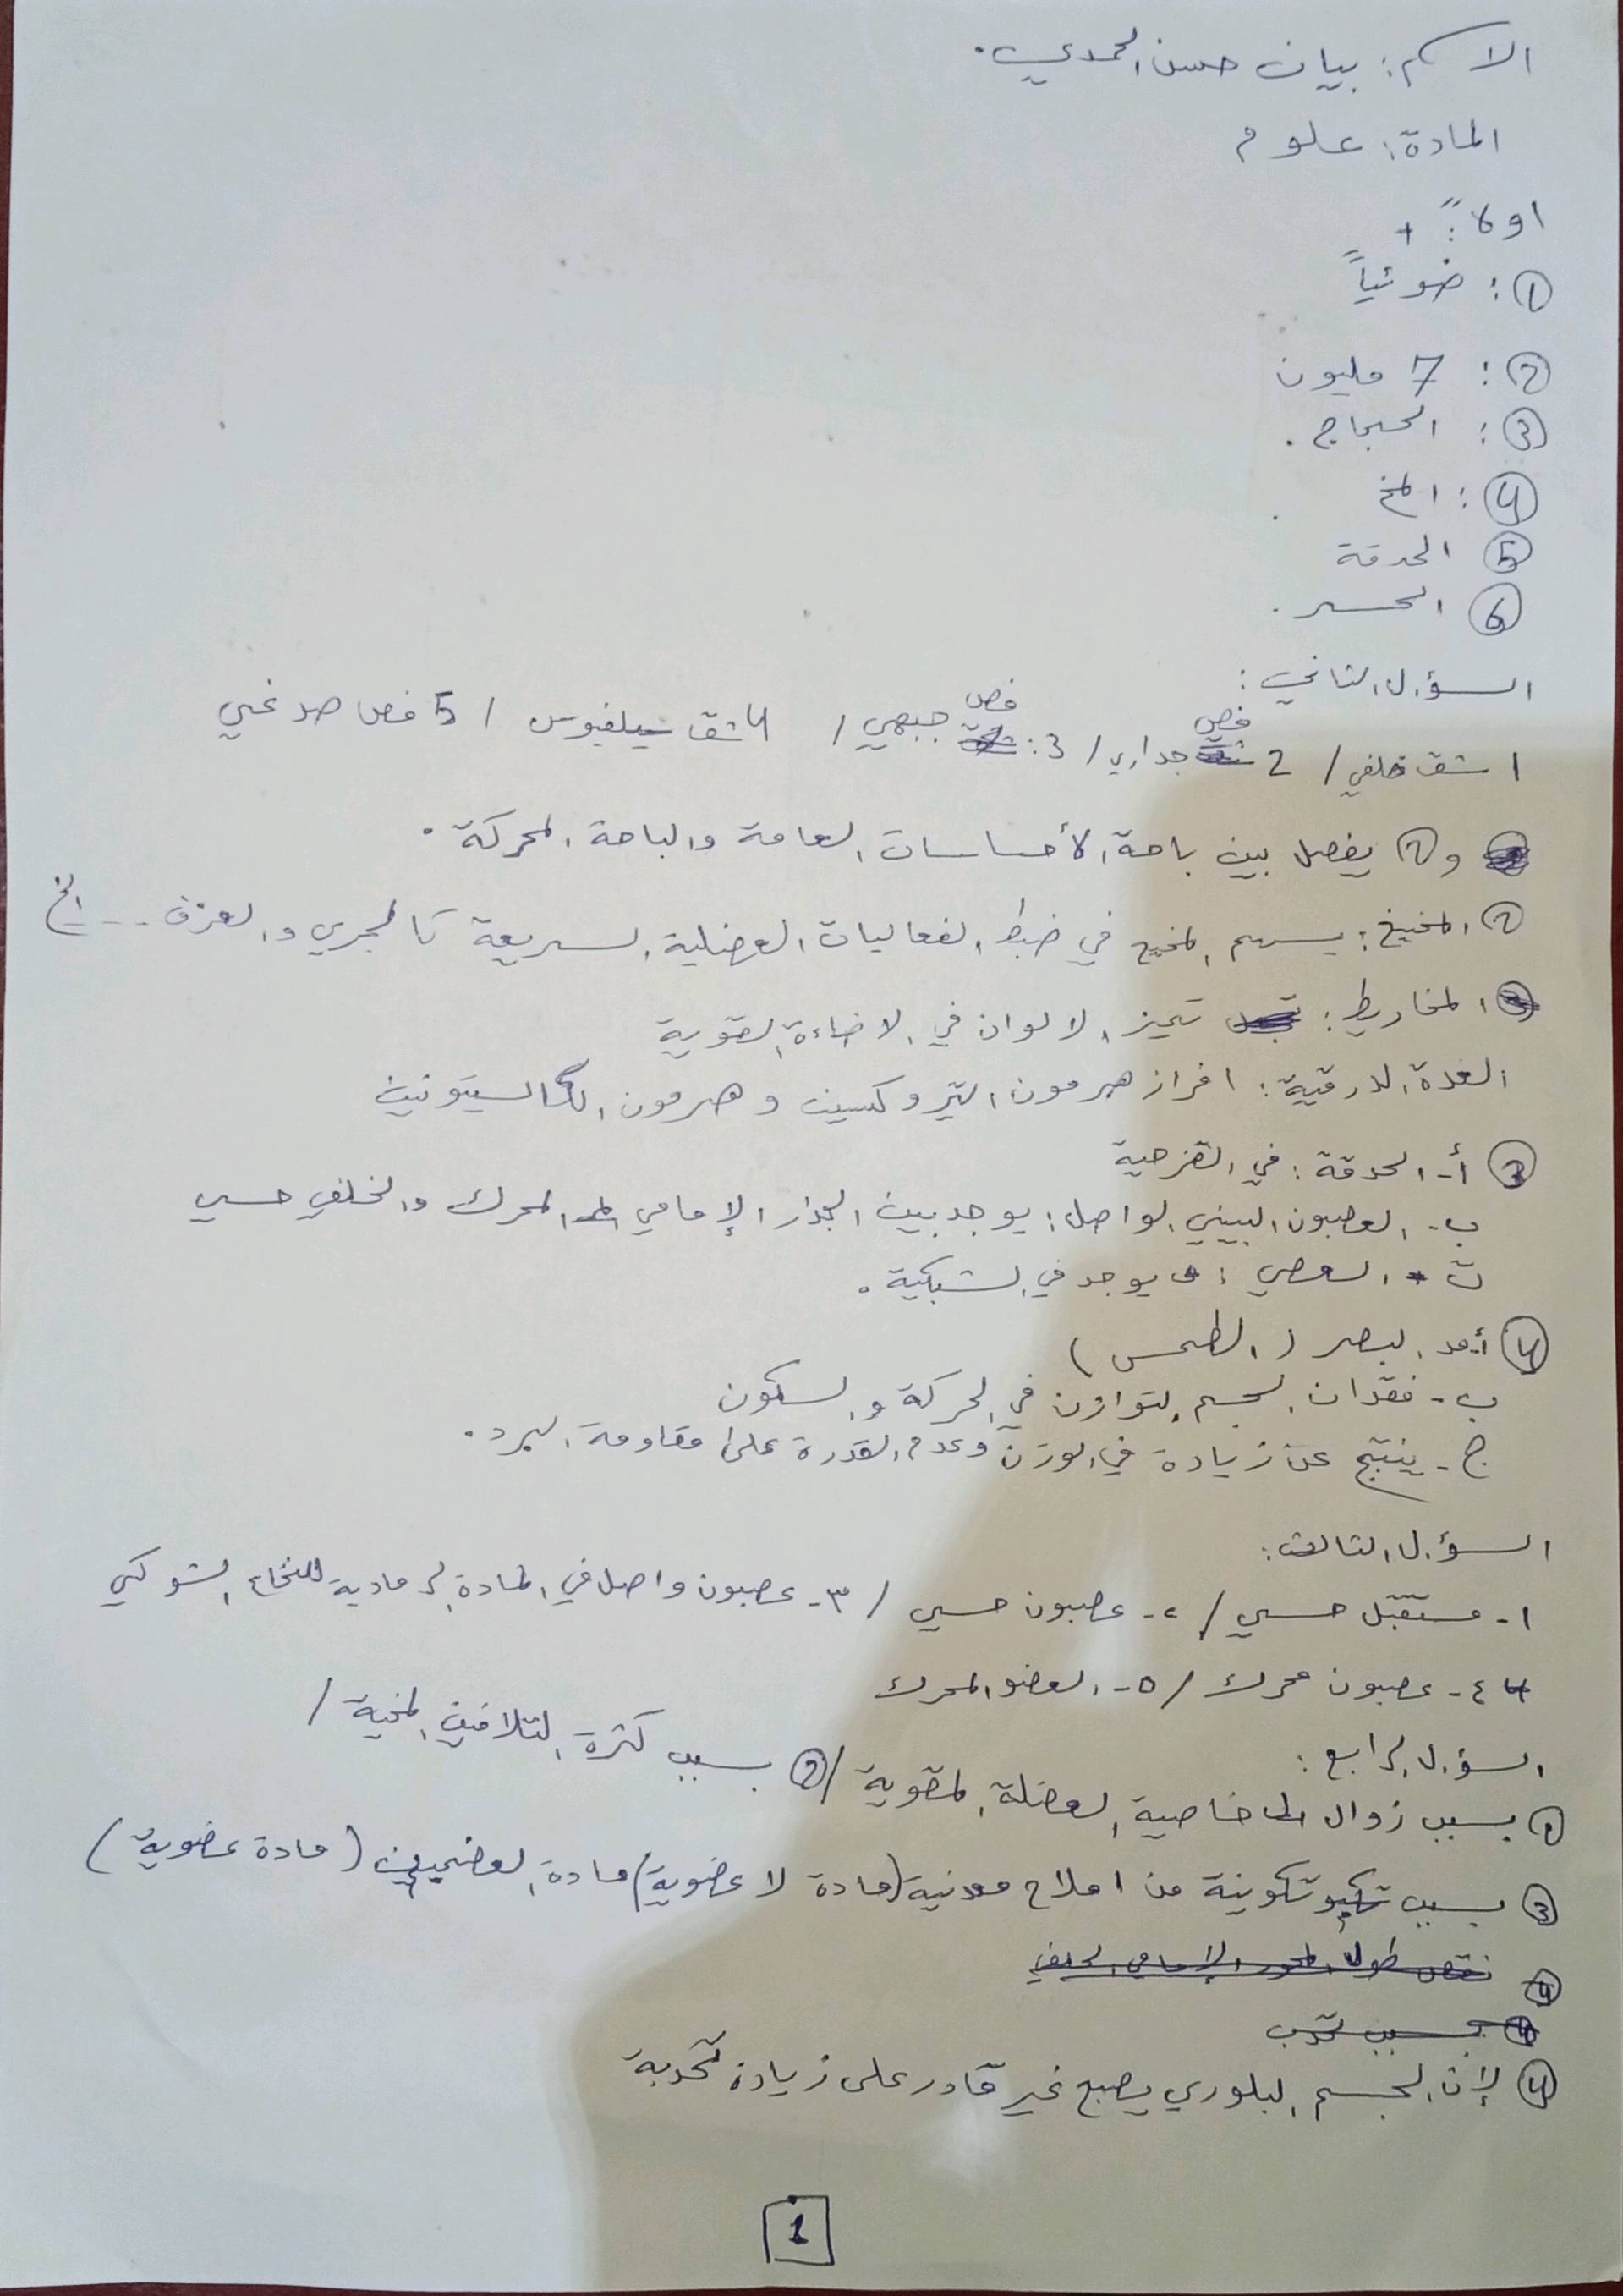 الاسم: بيان حسن المحمدي.
المادة: علوم
اولاً: +
①: ضوئياً
②: 7 مليون
③: الحجاج.
④: المخ
⑤ الحدقة
⑥ الحسر.
السؤال الثاني:
1 شق خلفي / 2 فص جداري / 3: فص جبهي / 4 شق سيلفيوس / 5 فص صدغي
و② يفصل بين باحة الأحساسات العامة والباحة المحركة.
② المخيخ: يسهم المخيخ في ضبط الفعاليات العضلية السريعة كالجري والعزف ... الخ
المخاريط: تميز الالوان في الاضاءة القوية
الغدة الدرقية: افراز هرمون التيروكسين وهرمون الكالسيتونين
③ أ- الحدقة: في القزحية
ب- العصبون البيني الواصل: يوجد بين الجذر الإمامي المحرك والخلفي حسي
ت- العصي: يوجد في الشبكية.
④ أ- مد البصر (الطمس)
ب- فقدان الجسم التوازن في الحركة والسكون
ج- ينتج عن زيادة في الوزن وعدم القدرة على مقاومة البرد.
السؤال الثالث:
١- مستقبل حسي / ٢- عصبون حسي / ٣- عصبون واصل في المادة الرمادية للنخاع الشوكي
٤- عصبون محرك / ٥- العضو المحرك
السؤال الرابع:
① بسبب زوال خاصية العضلة المقوية / ② بسبب كثرة التلافيف المخية /
③ بسبب تكوينة من املاح معدنية (مادة لا عضوية) مادة العضميين (مادة عضوية)
④ نقص طول المحور الإمامي الخلفي
④ بسبب تحدب
④ لإن الجسم البلوري يصبح غير قادر على زيادة تحدبة
1